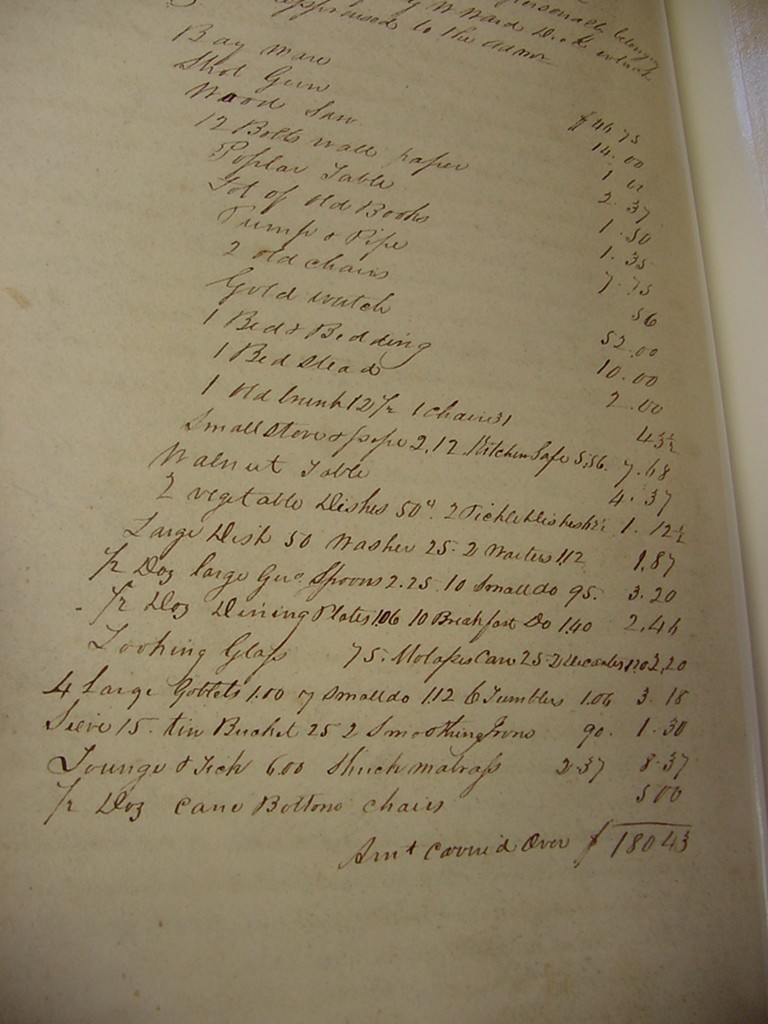 personally belonging
W Ward Dec'd which
appraised to the admr
Bay Mare $46.75
Shot Gun 14.00
Wood Saw 1
12 Bolts wall paper 2.37
Poplar Table 1.50
Lot of old Books 1.35
Pump & Pipe 7.75
2 old chairs 56
Gold watch 52.00
1 Bed & Bedding 10.00
1 Bed stead 2.00
1 old trunk 12½ 1 chair 31 43½
Small stove & pipe 2.12 Kitchen Safe 5.56. 7.68
Walnut Table 4.37
2 vegetable Dishes 50" 2 Pickle Dishes 1.12½
Large Dish 50 Washer 25. 2 Waiters 112 1.87
½ Doz large Spoons 2.25. 10 Small do 95. 3.20
½ Doz Dining Plates 106 10 Breakfast Do 1.40 2.46
Looking Glass 75. Molasses Can 25. 2 Decanters 1.20 2.20
4 Large Goblets 1.00 7 Small do 1.12 6 Tumblers 1.06 3.18
Sieve 15. tin Bucket 25 2 Smoothing Irons 90. 1.30
Lounge & Tick 6.00 Shuck matrass 2.37 8.37
½ Doz Cane Bottom chairs 5 00
Amt Carried Over $180 43